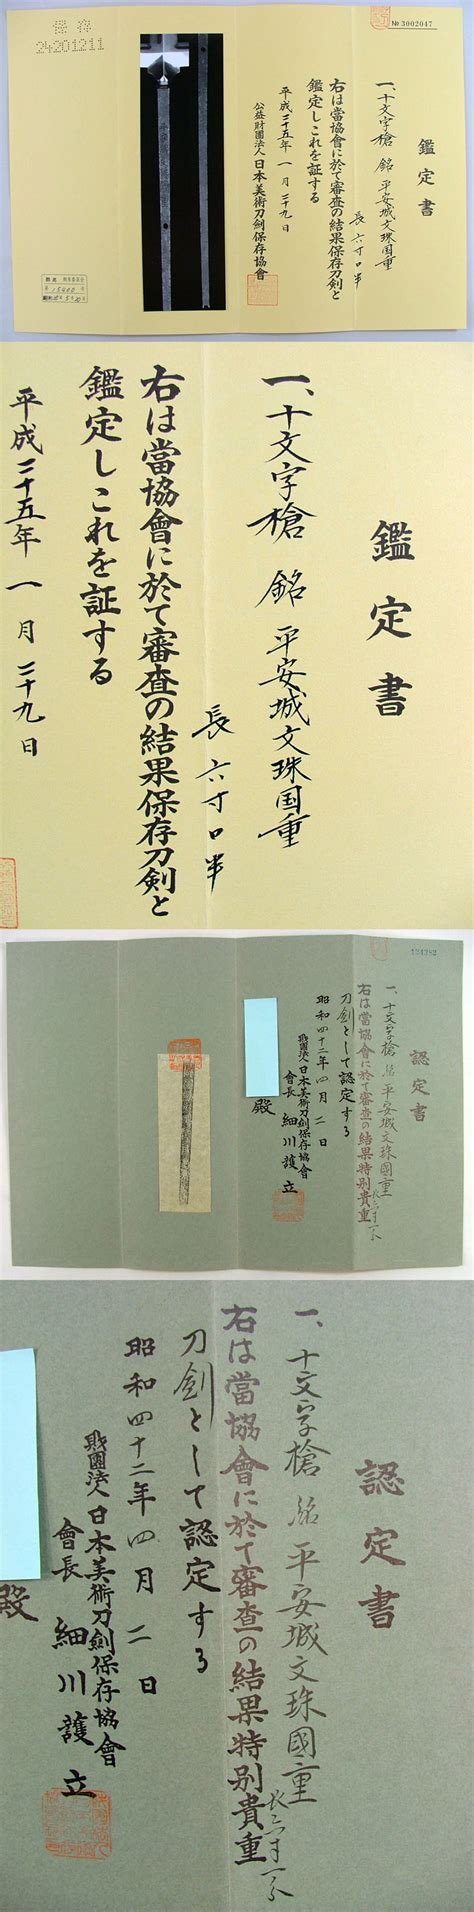 保存
24201211
№ 3002047
鑑定書
一、十文字槍 銘 平安城文珠国重
長六寸口半
右は當協會に於て審査の結果保存刀劍と
鑑定しこれを証する
平成二十五年一月二十九日
公益財團法人日本美術刀劍保存協會
鑑定書
一、十文字槍 銘 平安城文珠国重
長六寸口半
右は當協會に於て審査の結果保存刀劍と
鑑定しこれを証する
平成二十五年一月二十九日
認定書
一、十文字槍 銘 平安城文珠國重
右は當協會に於て審査の結果特別貴重
刀劍として認定する
昭和四十二年四月二日
財團法人日本美術刀劍保存協會
會長 細川護立
殿
認定書
一、十文字槍 銘 平安城文珠國重
右は當協會に於て審査の結果特別貴重
刀劍として認定する
昭和四十二年四月二日
財團法人日本美術刀劍保存協會
會長 細川護立
殿